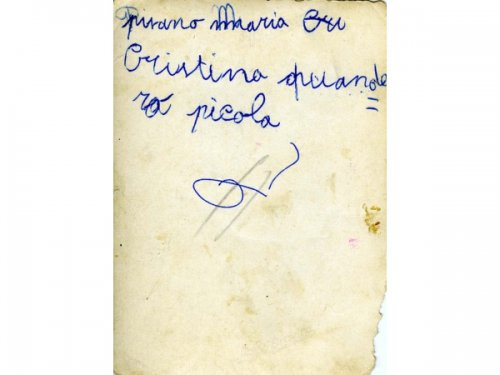 Pisano Maria Cri
Cristina quande
ra picola